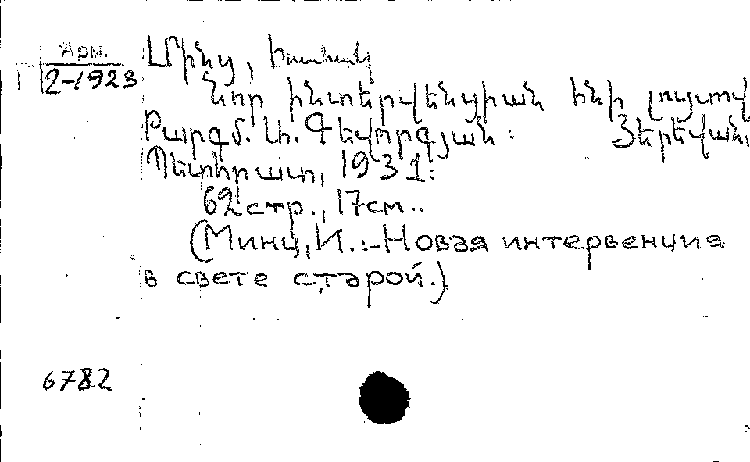 Арм.
2-1923
Մինց, Իսահակ
Նոր ինտերվենցիան հնի լույսով
Թարգմ. Ս. Գևորգյան: Յերեվան,
Պետհրատ, 1931:
62 стр., 17 см..
(Минц, И.:-Новая интервенция
в свете старой.)
6782